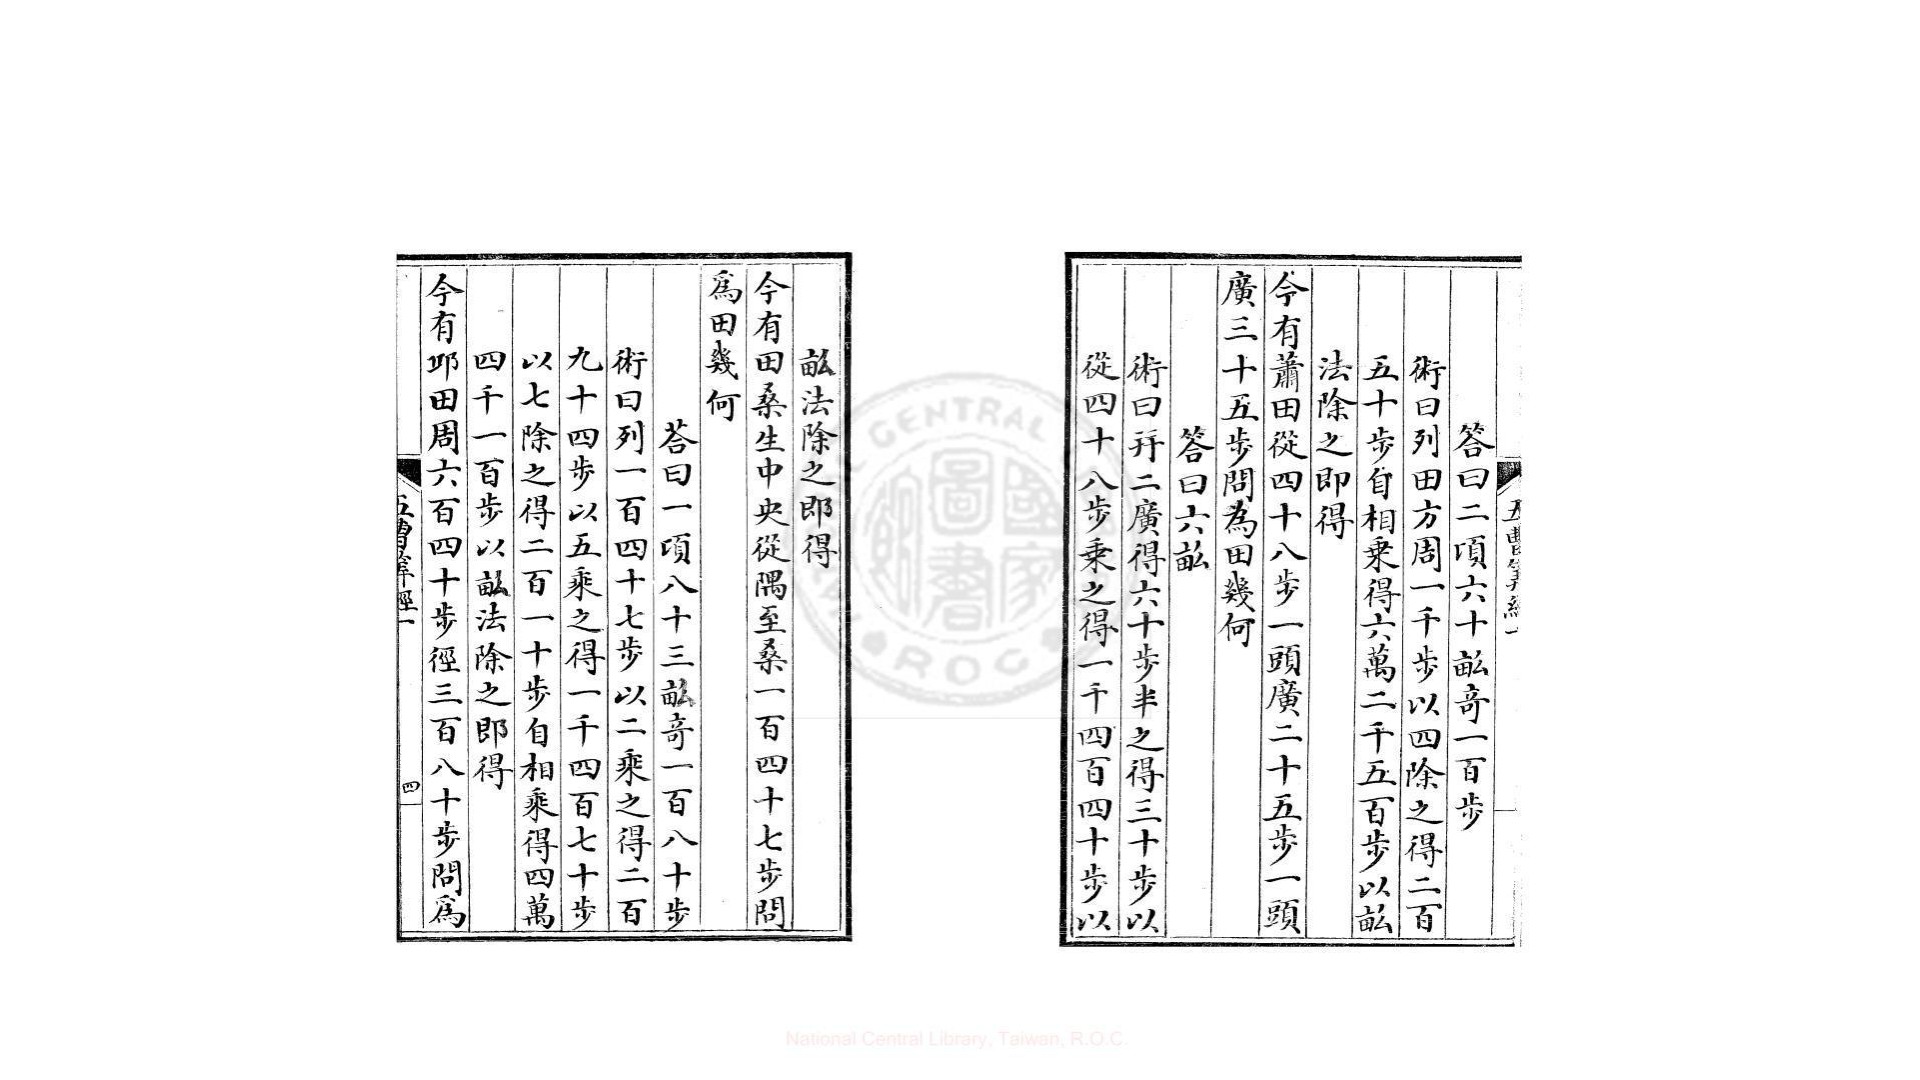 五曹算經一
答曰二頃六十畝竒一百步
術曰列田方周一千步以四除之得二百
五十步自相乗得六萬二千五百步以畝
法除之即得
今有蕭田從四十八步一頭廣二十五步一頭
廣三十五步問為田幾何
答曰六畝
術曰幷二廣得六十步半之得三十步以
從四十八步乗之得一千四百四十步以
畝法除之即得
今有田桑生中央從隅至桑一百四十七步問
爲田幾何
荅曰一頃八十三畝竒一百八十步
術曰列一百四十七步以二乘之得二百
九十四步以五乘之得一千四百七十步
以七除之得二百一十步自相乘得四萬
四千一百步以畝法除之即得
今有邱田周六百四十步徑三百八十步問爲
五曹筭經一
四
NATIONAL CENTRAL LIBRARY
ROC
國家圖書館
National Central Library, Taiwan, R.O.C.